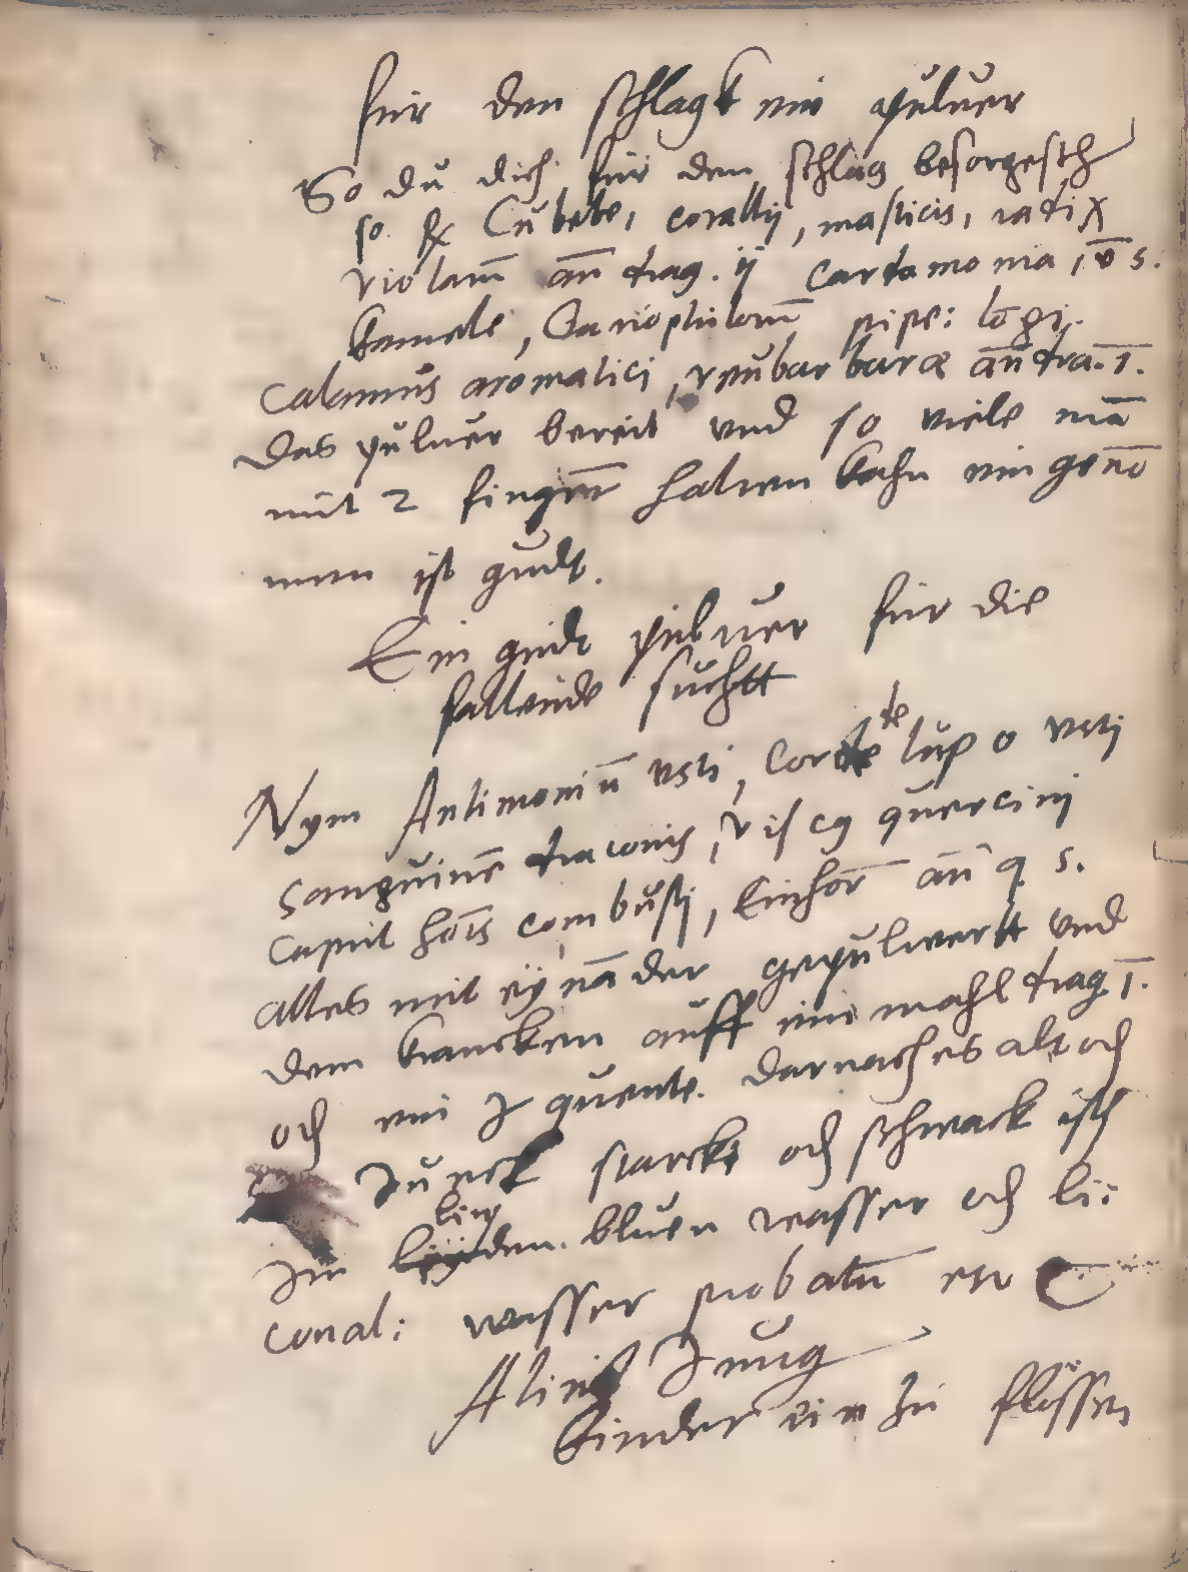 für den schlagk ein puluer
So du dich für den schlag besorgesth
so ℞ Cubebe, corallij, masticis, radix
violarū an̄ drag. ij cardamomia, ō s.
kamele, Gariophilorū pipe: lōgi.
Calamus aromatici, reubarbaræ an̄ dra. j.
das puluer bereit vnd so viele mā
mit 2 fingerr̄ halten kahn ein genō
men ist gudt.
Ein gudt puluer für die
fallende suchtt
Nym Antimoniū vsti, Corde de lupo vsti
sanguine draconis, viscy quercinj
Caput hoīs combustj, Einhor̄ an̄ q. s.
alles mit eynāder gepulwertt vnd
dem krancken auff ein mahl drag j.
och ein J quente. darnach es alt och
Junck starck och schwack isth
Jn linden bluen wasser och lii
conal: wasser probatū est
Jung
kinder ein zu flössen